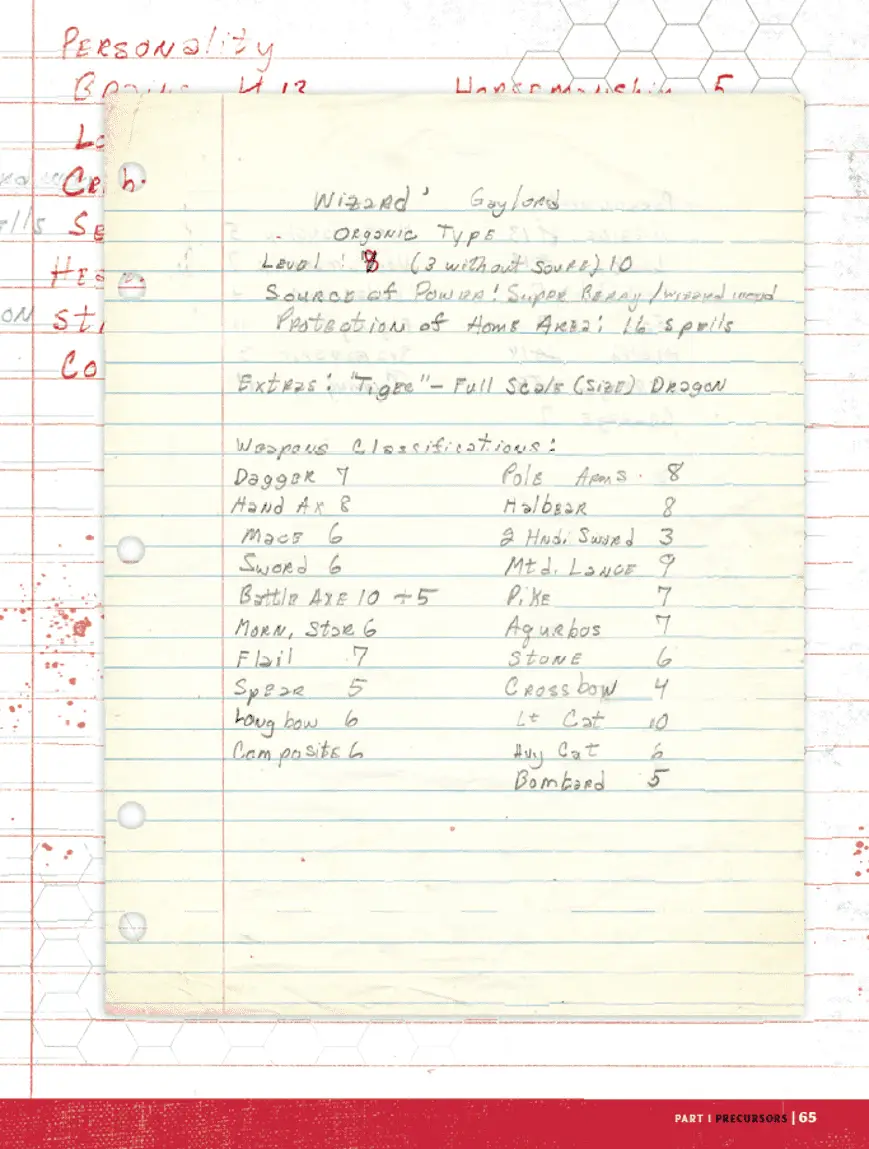 Personality
Brains 13 Horsemanship 5
Lo
Cr
ells Se
Hea
on Sta
Co
h.
Wizard: Gaylord
Organic Type
Level: 8 (3 without Source) 10
Source of Power: Super Berry / wizard wood
Protection of Home Area: 16 spells
Extras: "Tiger" – Full Scale (Size) Dragon
Weapons Classifications:
Dagger 7 Pole Arms . 8
Hand Ax 8 Halbear 8
Mace 6 2 Hnd. Sword 3
Sword 6 Mtd. Lance 9
Battle Axe 10 ÷ 5 Pike 7
Morn, Star 6 Aqurbos 7
Flail 7 Stone 6
Spear 5 Crossbow 4
Long bow 6 Lt Cat 10
Composite 6 Hvy Cat 6
Bombard 5
PART I PRECURSORS | 65